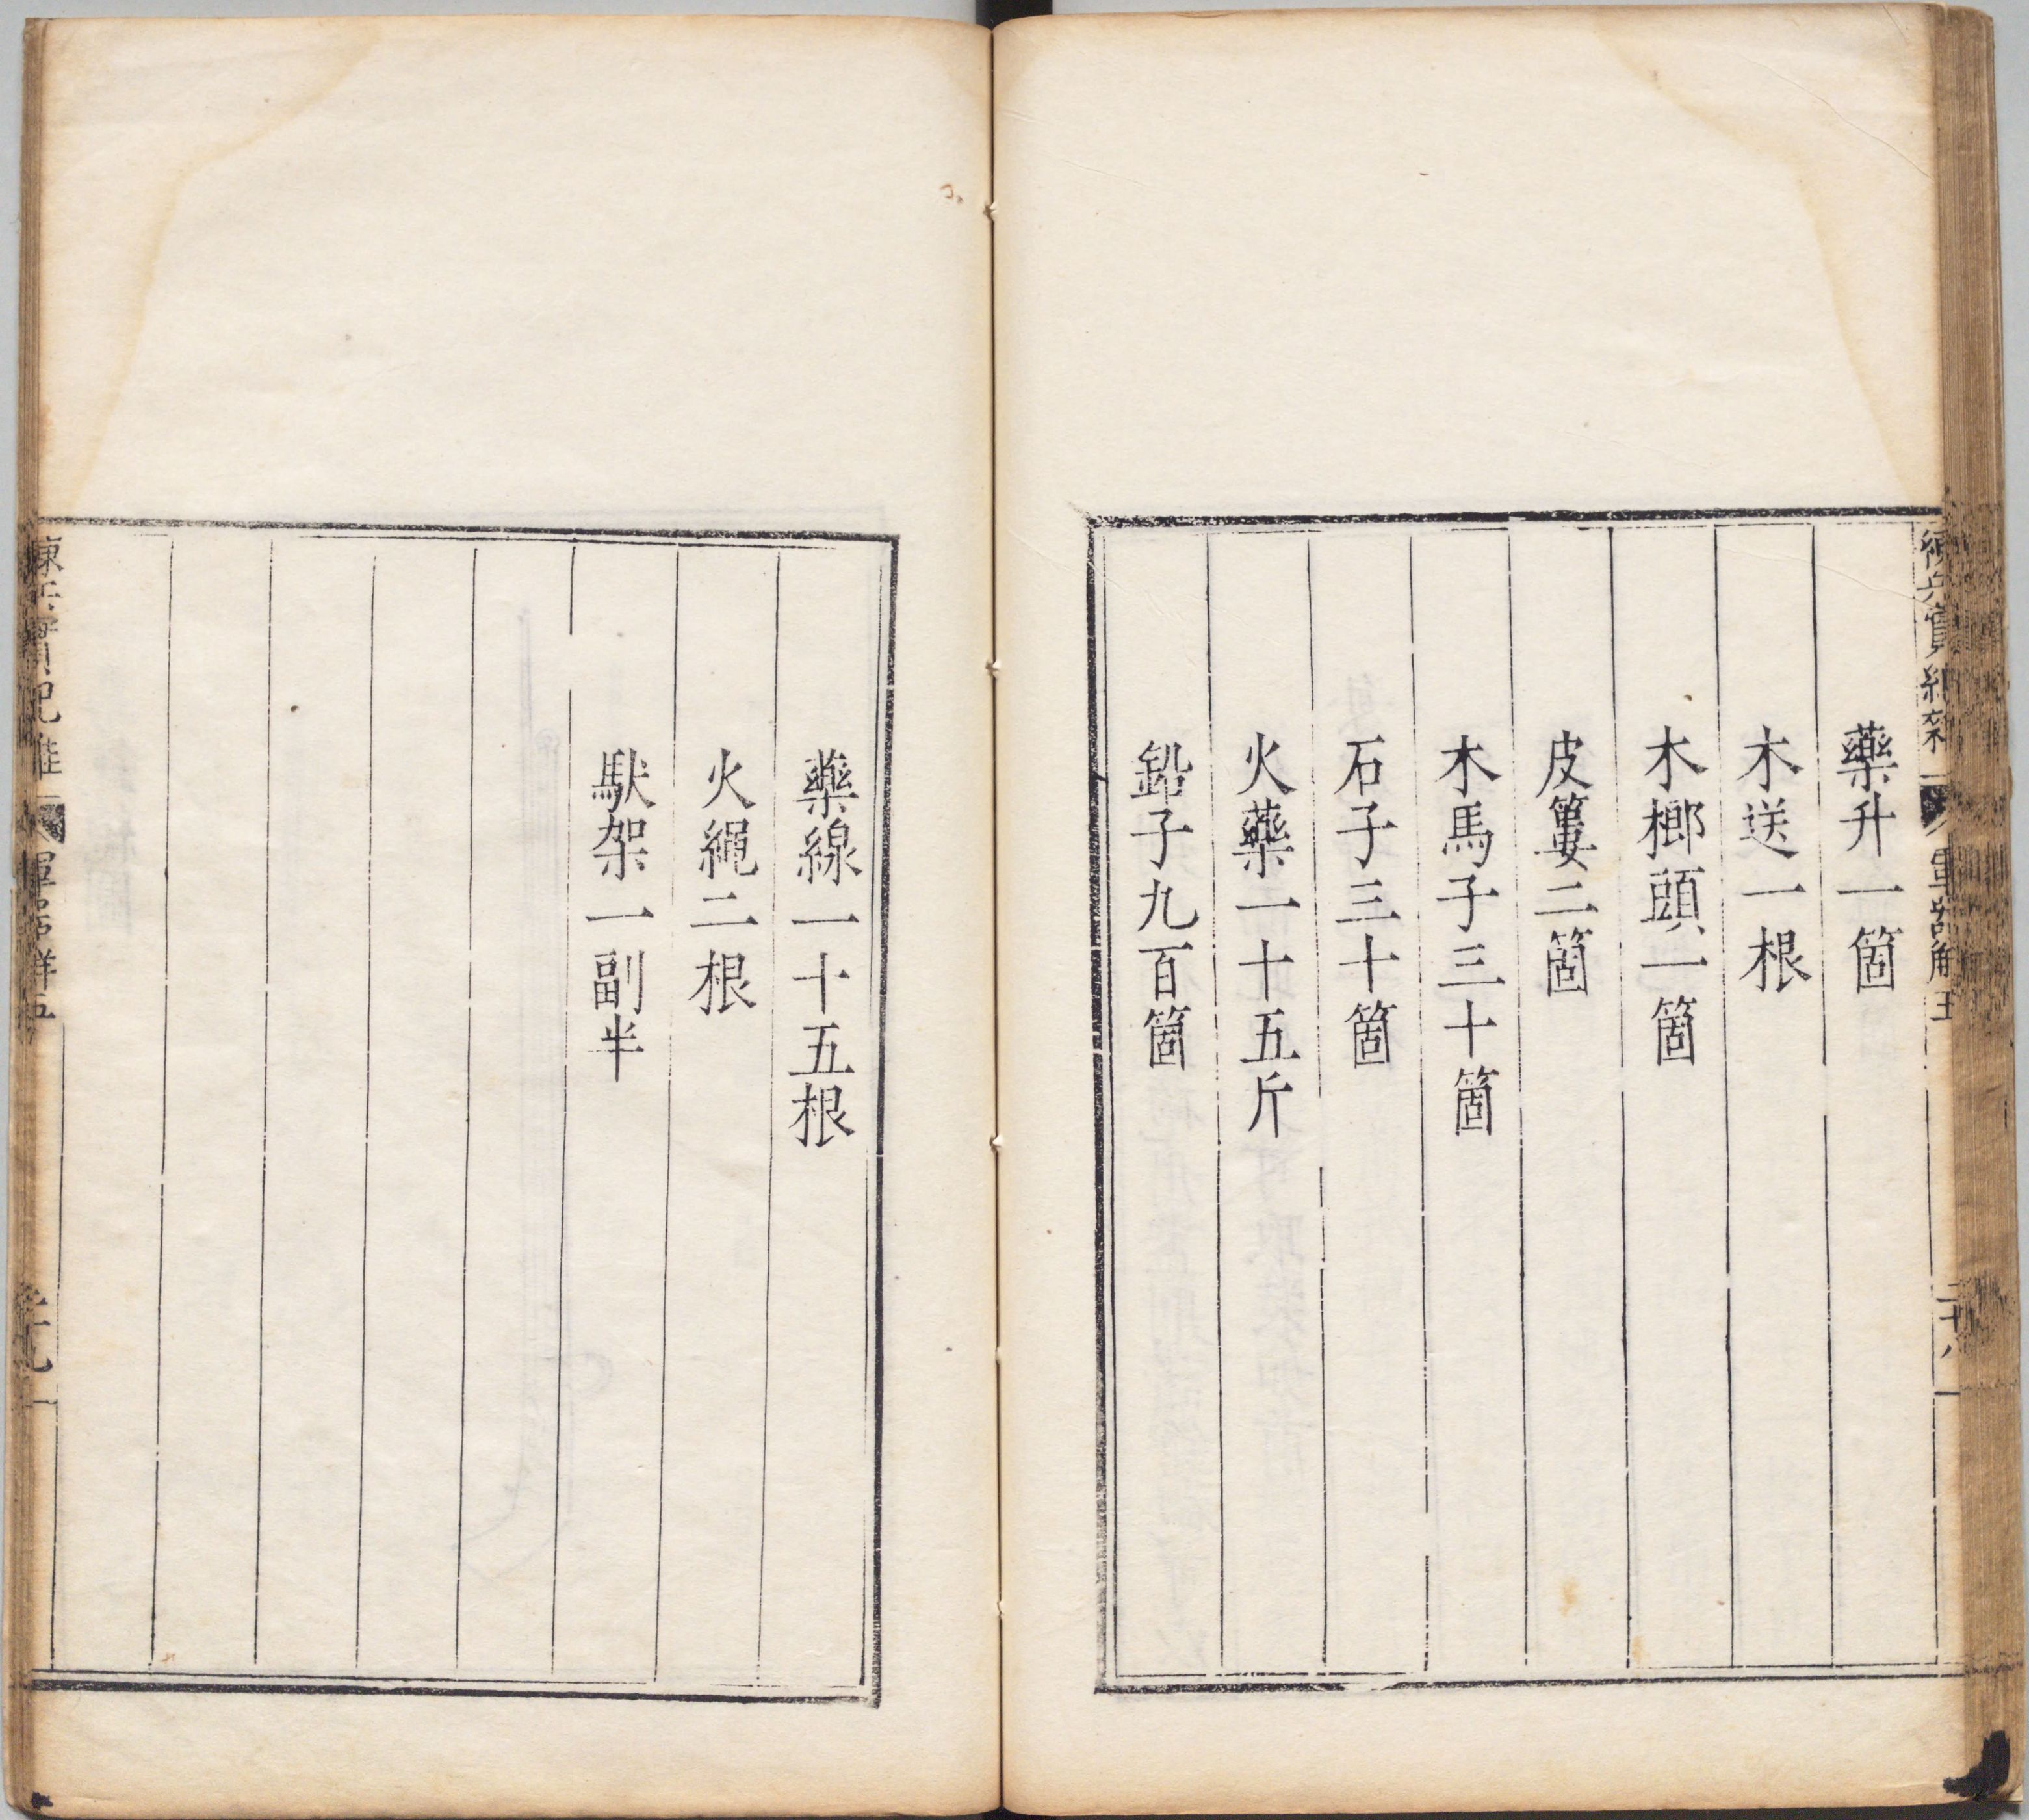 藥升一箇
木送一根
木榔頭一箇
皮簍二箇
木馬子三十箇
石子三十箇
火藥一十五斤
鉛子九百箇
藥線一十五根
火繩二根
馱架一副半